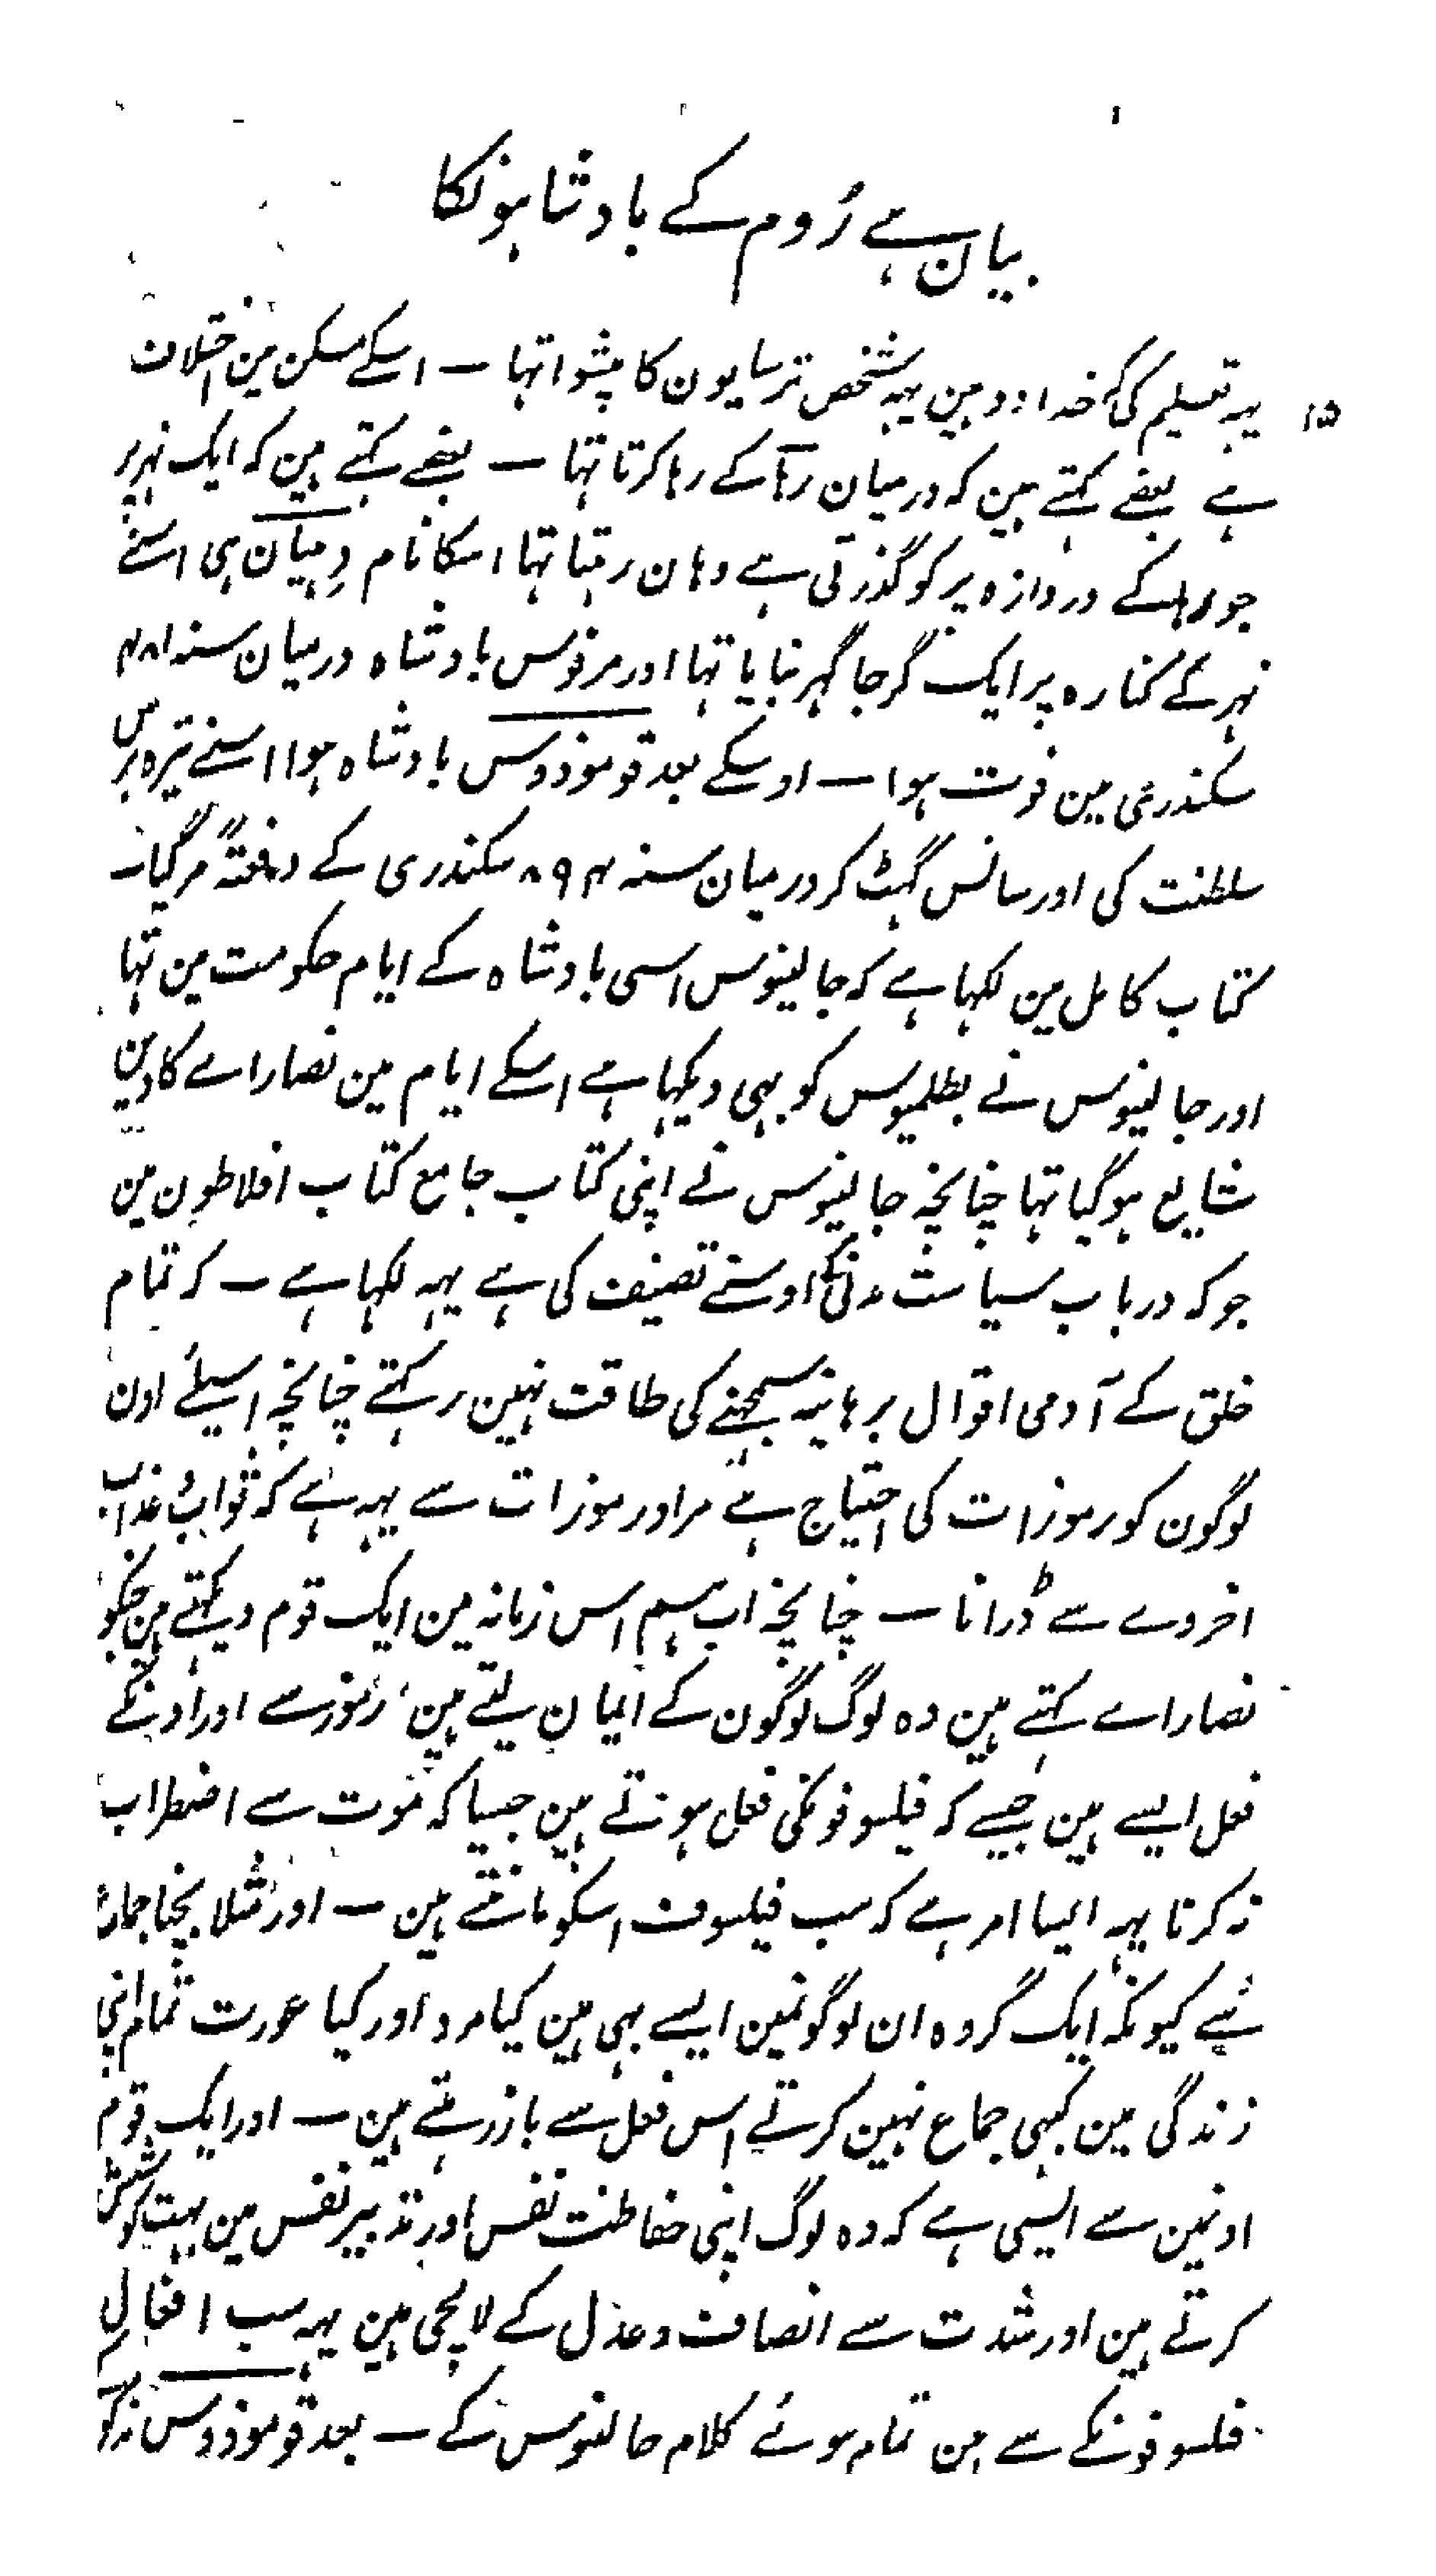 بیان ہے رُوم کے بادشاہونکا
۱۵ یہہ تعلیم کی خدا دو ہین یہہ شخص ترسایون کا پیشوا تہا — اسکے مسکن مین اختلاف
ہے بعضے کہتے ہین کہ درمیان رہآ کے رہا کرتا تہا — بعضے کہتے ہین کہ ایک نہر پر
جو رہا کے دروازہ پر کو گذرتی ہے وہان رہتا تہا اسکا نام دِیصان ہی اسنے
نہر کے کنارہ پر ایک گرجا گہر بنایا تہا اور مرقوس بادشاہ درمیان سنہ ۴۸۱
سکندری مین فوت ہوا — اوسکے بعد قوموذوس بادشاہ ہوا اسنے تیرہ برس
سلطنت کی اور سانس گہٹ کر درمیان سنہ ۸۹۴ سکندری کے دفعتہً مر گیا —
کتاب کامل مین لکہا ہے کہ جالینوس اسی بادشاہ کے ایام حکومت مین تہا
اور جالینوس نے بطلمیوس کو بہی دیکہا ہے اسکے ایام مین نصاراے کا دین
شایع ہو گیا تہا چنانچہ جالینوس نے اپنی کتاب جامع کتاب افلاطون مین
جو کہ درباب سیاست مدنی کے اوسنے تصنیف کی ہے یہہ لکہا ہے — کہ تمام
خلق کے آدمی اقوال برہانیہ سمجہنے کی طاقت نہین رکہتے چنانچہ اسیلئے اون
لوگون کو رموزات کی احتیاج ہے مراد رموزات سے یہہ ہے کہ ثواب و عذاب
اخروے سے ڈرانا — چنانچہ اب ہم اس زمانہ مین ایک قوم دیکہتے ہین جنکو
نصاراے کہتے ہین وہ لوگ لوگون کے ایمان لیتے ہین رموز سے اور اونکے
فعل ایسے ہین جیسے کہ فیلسوفونکی فعل ہوتے ہین جیسا کہ موت سے اضطراب
نہ کرنا یہہ ایسا امر ہے کہ سب فیلسوف اسکو مانتے ہین — اور مثلا بچنا جماع
سے کیونکہ ایک گروہ ان لوگونمین ایسے بہی ہین کیا مرد اور کیا عورت تمام اپنی
زندگی مین کبہی جماع نہین کرتے اس فعل سے باز رہتے ہین — اور ایک قوم
اونمین سے ایسی ہے کہ وہ لوگ اپنی حفاظت نفس اور تدبیر نفس مین بہت کوشش
کرتے ہین اور شدت سے انصاف و عدل کے لالچی ہین یہہ سب افعال
فلسوفونکے سے ہین تمام ہوئے کلام جالینوس کے — بعد قوموذوس مذکور کے